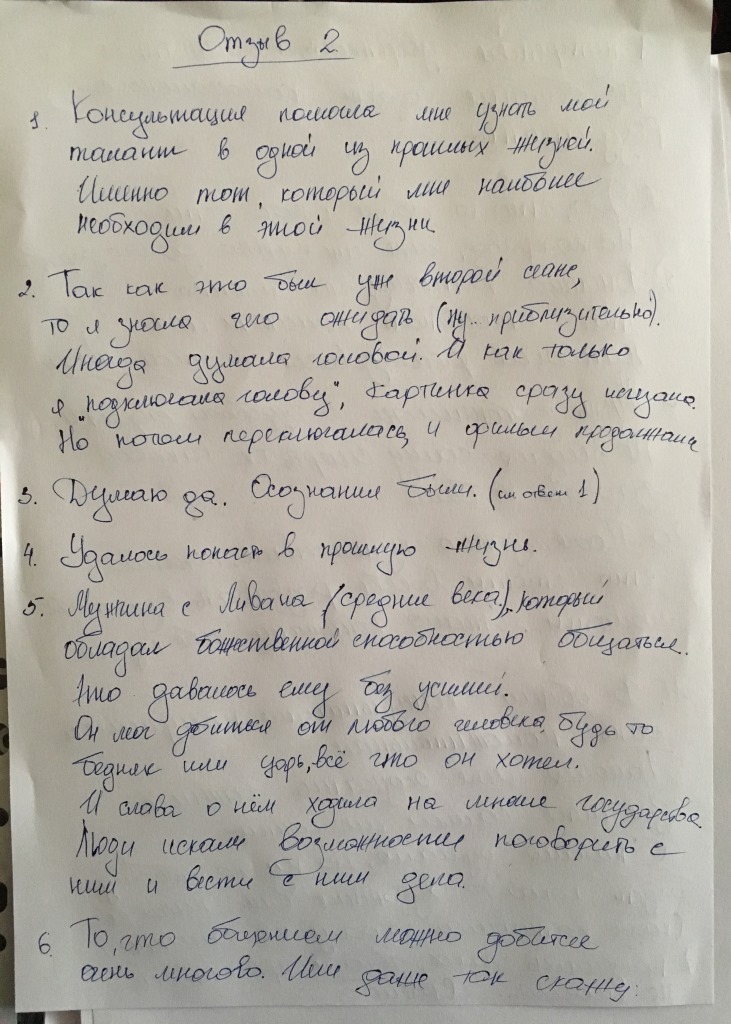 Отзыв 2
1. Консультация помогла мне узнать мой
талант в одной из прошлых жизней.
Именно тот, который мне наиболее
необходим в этой жизни
2. Так как это был уже второй сеанс,
то я знала чего ожидать (ну.. приблизительно).
Иногда думала головой. И как только
я "подключала голову", картинка сразу исчезала.
Но потом переключалась, и фильм продолжался
3. Думаю да. Осознания были. (см ответ 1)
4. Удалось попасть в прошлую жизнь.
5. Мужчина с Ливана (средние века), который
обладал божественной способностью общаться.
Это давалось ему без усилий.
Он мог добиться от любого человека, будь то
бедняк или царь, всё что он хотел.
И слава о нём ходила на многие государства.
Люди искали возможности поговорить с
ним и вести с ним дела.
6. То, что общением можно добится
очень многово. Или даже так скажу: